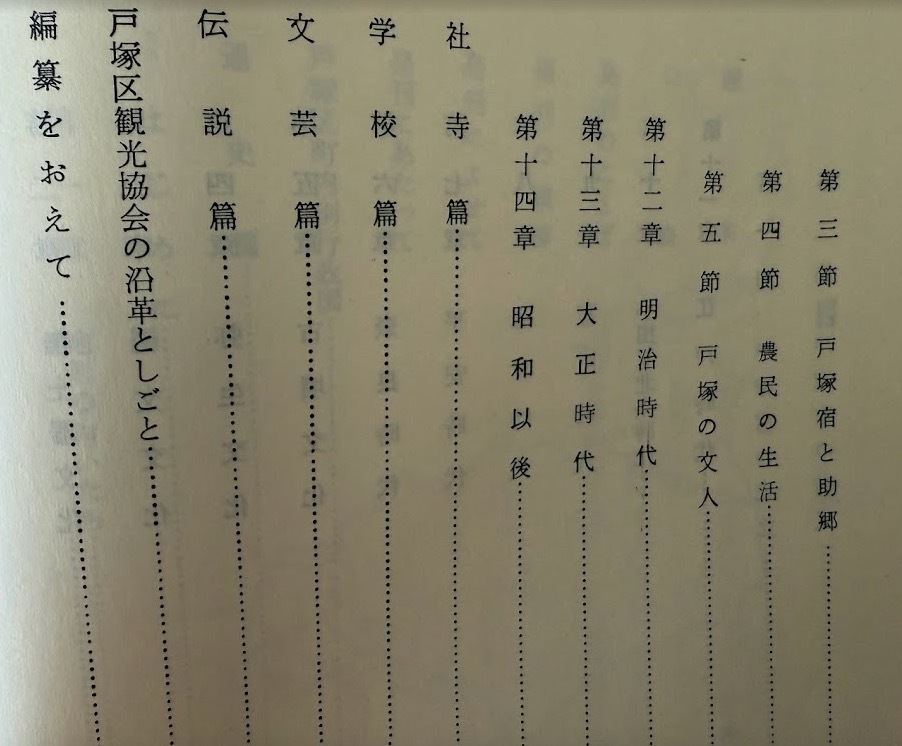 第三節 戸塚宿と助郷……
第四節 農民の生活……
第五節 戸塚の文人……
第十二章 明治時代……
第十三章 大正時代……
第十四章 昭和以後……
社寺篇……
学校篇……
文芸篇……
伝説篇……
戸塚区観光協会の沿革としごと……
編纂をおえて……